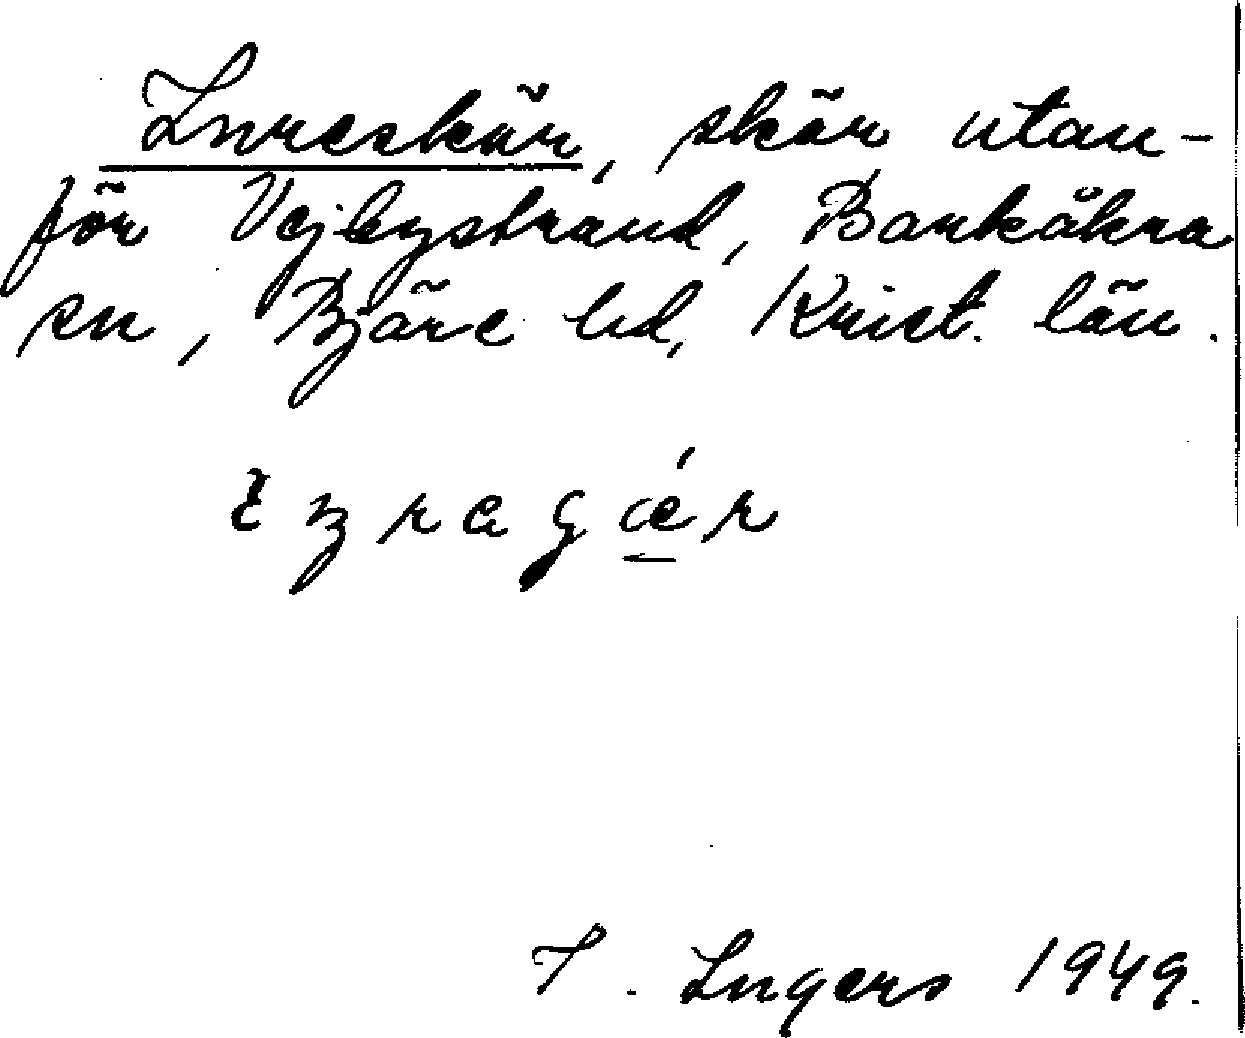 Inreskär, skär utan-
för Vejbystrand, Barkåkra
sn, Bjäre hd, Krist. län.
I. Ingers 1949.